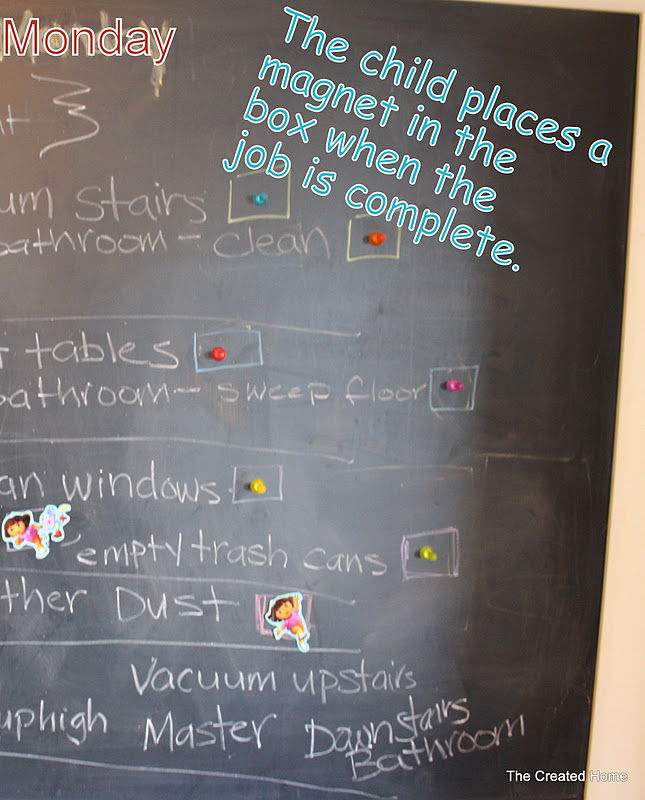 Monday
The child places a
magnet in the
box when the
job is complete.
um Stairs
bathroom - clean
tables
bathroom - sweep floor
an windows
empty trash cans
ther Dust
Vacuum upstairs
uphigh Master Downstairs
Bathroom
The Created Home